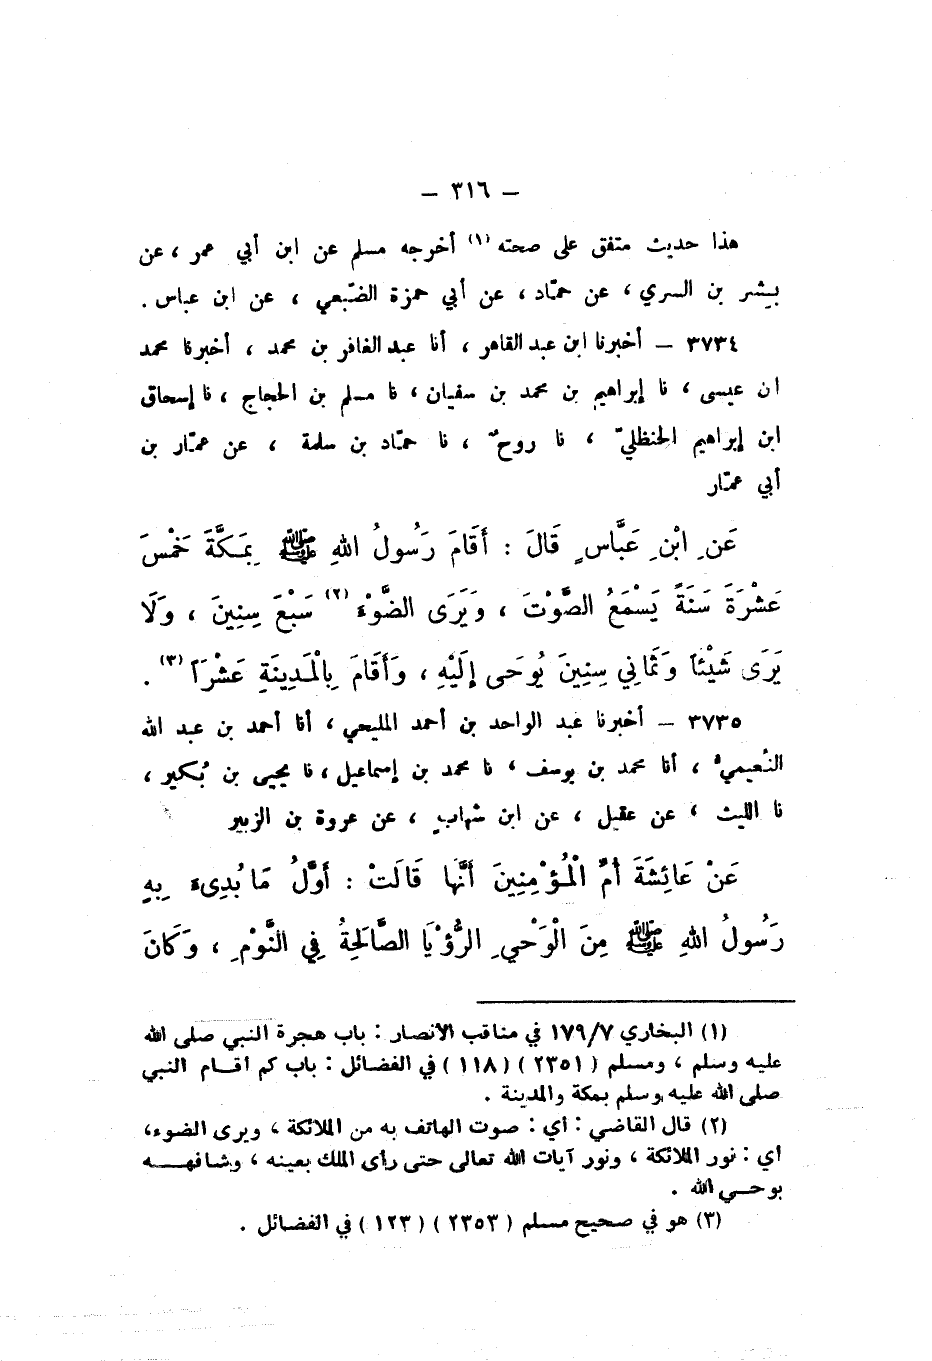 — ٣١٦ —
هذا حديث متفق على صحته (١) أخرجه مسلم عن ابن أبي عمر ، عن
بشر بن السري ، عن حمّاد ، عن أبي حمزة الضّبعي ، عن ابن عباس .
٣٧٣٤ — أخبرنا ابن عبد القاهر ، أنا عبد الغافر بن محمد ، أخبرنا محمد
ان عيسى ، نا إبراهيم بن محمد بن سفيان ، نا مسلم بن الحجاج ، نا إسحاق
ابن إبراهيم الحنظليّ ، نا روحٌ ، نا حمّاد بن سلمة ، عن عمّار بن
أبي عمّار
عَنِ ابْنِ عَبَّاسٍ قَالَ : أَقَامَ رَسُولُ اللهِ ﷺ بِمَكَّةَ خَمْسَ
عَشْرَةَ سَنَةً يَسْمَعُ الصَّوْتَ ، وَيَرَى الضَّوْءَ (٢) سَبْعَ سِنِينَ ، وَلَا
يَرَى شَيْئاً وَثَمَانِي سِنِينَ يُوحَى إِلَيْهِ ، وَأَقَامَ بِالْمَدِينَةِ عَشْرَاً (٣) .
٣٧٣٥ — أخبرنا عبد الواحد بن أحمد المليحي ، أنا أحمد بن عبد الله
النُعيميُ ، أنا محمد بن يوسف ، نا محمد بن إسماعيل ، نا يحيى بن بُكير ،
نا الليث ، عن عقيل ، عن ابن شهابٍ ، عن عروة بن الزبير
عَنْ عَائِشَةَ أُمِّ الْمُؤْمِنِينَ أَنَّهَا قَالَتْ : أَوَّلُ مَا بُدِىءَ بِهِ
رَسُولُ اللهِ ﷺ مِنَ الْوَحْيِ الرُّؤْيَا الصَّالِحَةُ فِي النَّوْمِ ، وَكَانَ
(١) البخاري ١٧٩/٧ في مناقب الأنصار : باب هجرة النبي صلى الله
عليه وسلم ، ومسلم ( ٢٣٥١ ) ( ١١٨ ) في الفضائل : باب كم أقام النبي
صلى الله عليه وسلم بمكة والمدينة .
(٢) قال القاضي : أي : صوت الهاتف به من الملائكة ، ويرى الضوء ،
أي : نور الملائكة ، ونور آيات الله تعالى حتى رأى الملك بعينه ، وشافهه
بوحي الله .
(٣) هو في صحيح مسلم ( ٢٣٥٣ ) ( ١٢٣ ) في الفضائل .